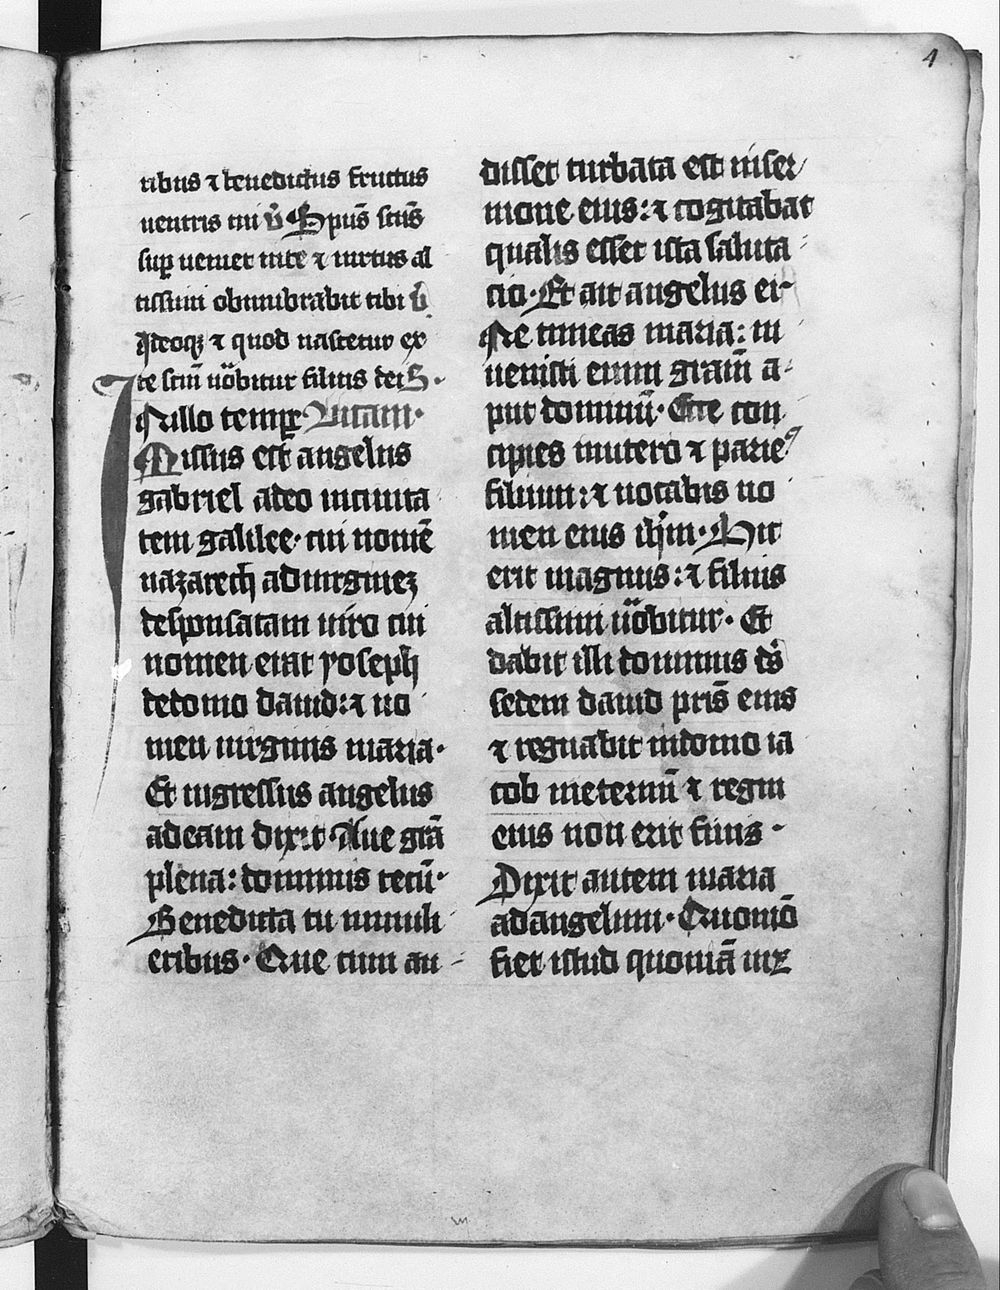 4
ribus ⁊ benedictus fructus
uentris tui v̄ Sp̄us sc̄us
suꝑ ueniet inte ⁊ uirtus al
tissimi obumbrabit tibi v̄
Ideoqꝫ ⁊ quod nascetur ex
te sc̄m uo̾bitur filius dei S·
Nillo tempꝛ̄ Lucam·
Missus est angelus
gabriel adeo inciuita
tem galilee· cui nomē
nazareth aduirginez
desponsatam uiro cui
nomen erat yoseph
dedomo dauid:⁊ no
men uirginis maria·
Et ingressus angelus
adeam dixit· Aue grā
plena: dominus tecū·
Benedicta tu inmuli
eribus· Que cum au
disset turbata est inser
mone eius:⁊ cogitabat
qualis esset ista saluta
cio· Et ait angelus ei·
Ne timeas maria: in
uenisti enim gram̄ a
put dominū· Ecce con
cipies inutero ⁊ paries
filium:⁊ uocabis no
men eius ih̄m· Hic
erit magnus:⁊ filius
altissimi uo̾bitur· Et
dabit illi dominus ds̄
sedem dauid pris̄ eius
⁊ regnabit indomo ia
cob ineternū ⁊ regni
eius non erit finis·
Dixit autem maria
adangelum· Quomō
fiet istud quoniā uiꝝ